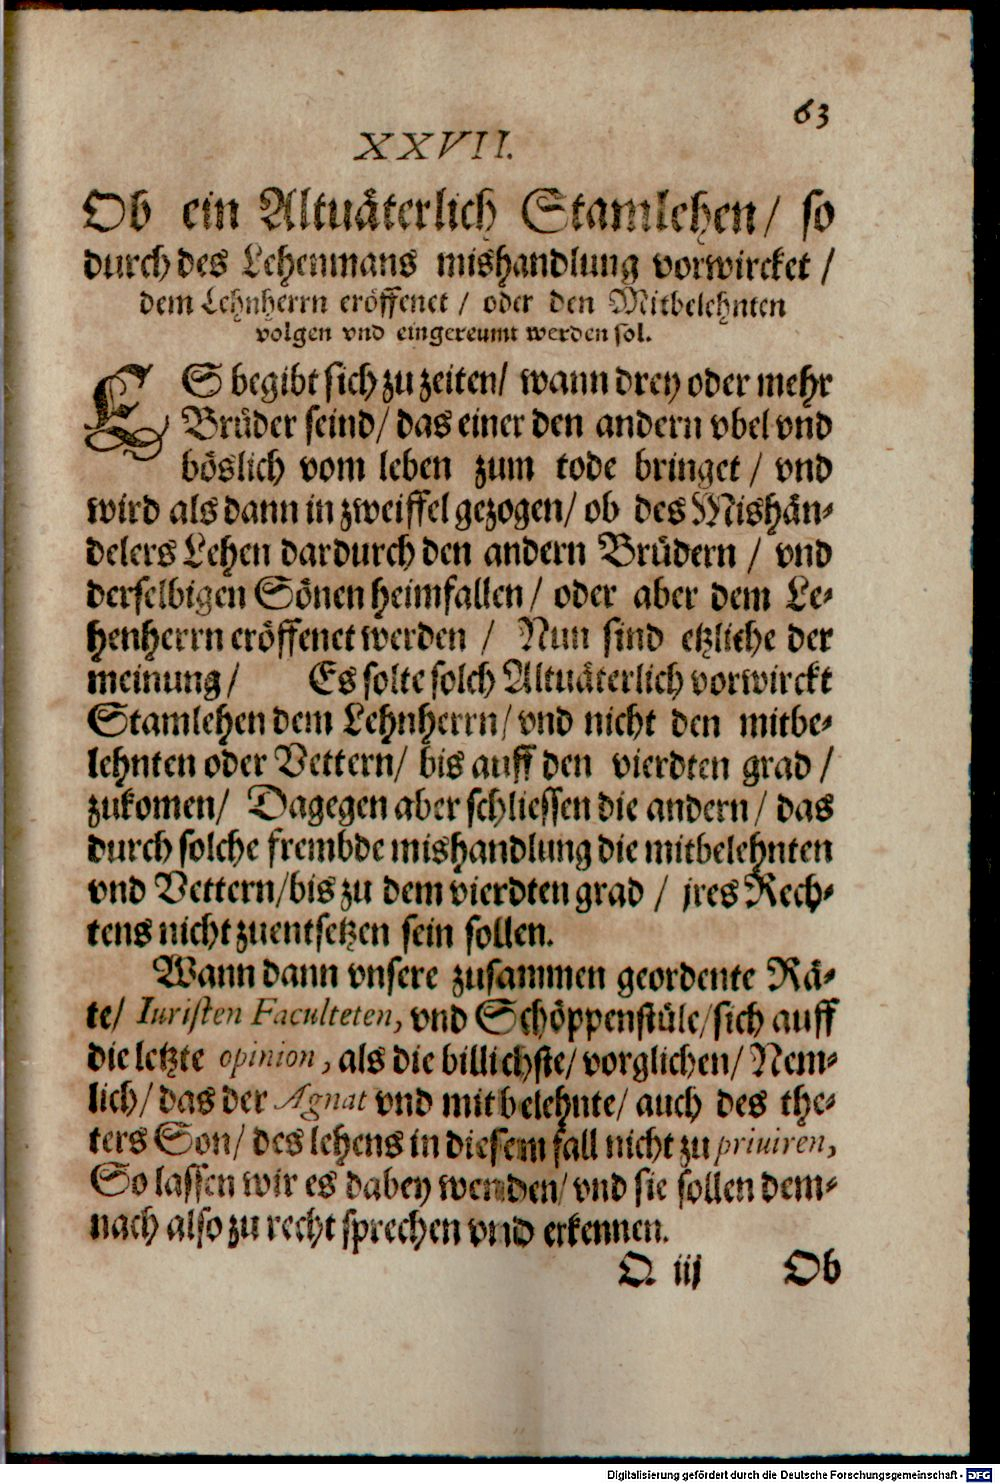 63
XXVII.
Ob ein Altuäterlich Stamlehen/ so
durch des Lehenmans mishandlung vorwircket /
dem Lehnherrn eröffenet / oder den Mitbelehnten
volgen vnd eingereumt werden sol.
ES begibt sich zu zeiten/ wann drey oder mehr
Brüder seind/ das einer den andern vbel vnd
böslich vom leben zum tode bringet / vnd
wird als dann in zweiffel gezogen/ ob des Mishän-
delers Lehen dardurch den andern Brüdern / vnd
derselbigen Sönen heimfallen / oder aber dem Le-
henherrn eröffenet werden / Nun sind etzliche der
meinung / Es solte solch Altuäterlich vorwirckt
Stamlehen dem Lehnherrn/ vnd nicht den mitbe-
lehnten oder Vettern/ bis auff den vierdten grad /
zukomen/ Dagegen aber schliessen die andern / das
durch solche frembde mishandlung die mitbelehnten
vnd Vettern/ bis zu dem vierdten grad / jres Rech-
tens nicht zuentsetzen sein sollen.
Wann dann vnsere zusammen geordente Rä-
te/ Iuristen Faculteten, vnd Schöppenstüle/ sich auff
die letzte opinion, als die billichste/ vorglichen/ Nem-
lich/ das der Agnat vnd mitbelehnte/ auch des the-
ters Son/ des lehens in diesem fall nicht zu priuiren,
So lassen wir es dabey wenden/ vnd sie sollen dem-
nach also zu recht sprechen vnd erkennen.
Q iij Ob
Digitalisierung gefördert durch die Deutsche Forschungsgemeinschaft - DFG